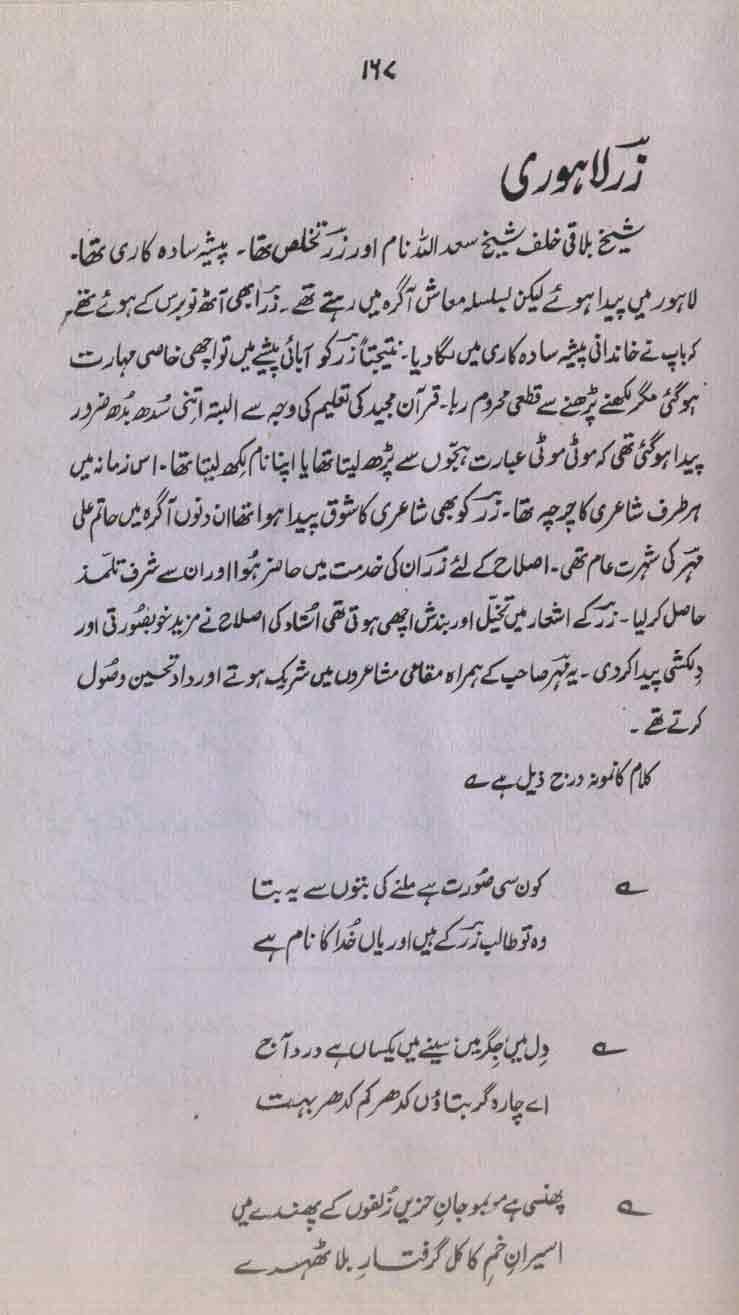 ۱۶۷
زرؔ لاہوری
شیخ بلاقی خلف شیخ سعد اللہ نام اور زرؔ تخلص تھا۔ پیشہ سادہ کاری تھا۔
لاہور میں پیدا ہوئے لیکن بسلسلہ معاش آگرہ میں رہتے تھے۔ زرؔ ابھی آٹھ نو برس کے ہوئے تھے
کہ باپ نے خاندانی پیشہ سادہ کاری میں لگا دیا۔ نتیجتاً زرؔ کو آبائی پیشے میں تو اچھی خاصی مہارت
ہوگئی مگر لکھنے پڑھنے سے قطعی محروم رہا۔ قرآن مجید کی تعلیم کی وجہ سے البتہ اتنی سُدھ بُدھ ضرور
پیدا ہوگئی تھی کہ موٹی موٹی عبارت ہجوں سے پڑھ لیتا تھا یا اپنا نام لکھ لیتا تھا۔ اس زمانہ میں
ہر طرف شاعری کا چرچہ تھا۔ زرؔ کو بھی شاعری کا شوق پیدا ہوا تھا ان دنوں آگرہ میں حاتم علی
مہرؔ کی شہرت عام تھی۔ اصلاح کے لئے زرؔ ان کی خدمت میں حاضر ہُوا اور ان سے شرف تلمّذ
حاصل کر لیا۔ زرؔ کے اشعار میں تخیّل اور بندش اچھی ہوتی تھی اُستاد کی اصلاح نے مزید خوبصُورتی اور
دِلکشی پیدا کر دی۔ یہ مہرؔ صاحب کے ہمراہ مقامی مشاعروں میں شریک ہوتے اور داد تحسین وصُول
کرتے تھے۔
کلام کا نمونہ درج ذیل ہے ؎
؎ کون سی صُورت ہے ملنے کی بتوں سے یہ بتا
وہ تو طالب زرؔ کے ہیں اور یاں خُدا کا نام ہے
؎ دِل میں جِگر میں سینے میں یکساں ہے درد آج
اے چارہ گر بتاؤں کدھر کم کدھر بہت
؎ پھنسی ہے مو بمو جانِ حزیں زُلفوں کے پھندے میں
اسیرانِ خمِ کاکل گرفتارِ بلا ٹھہرے